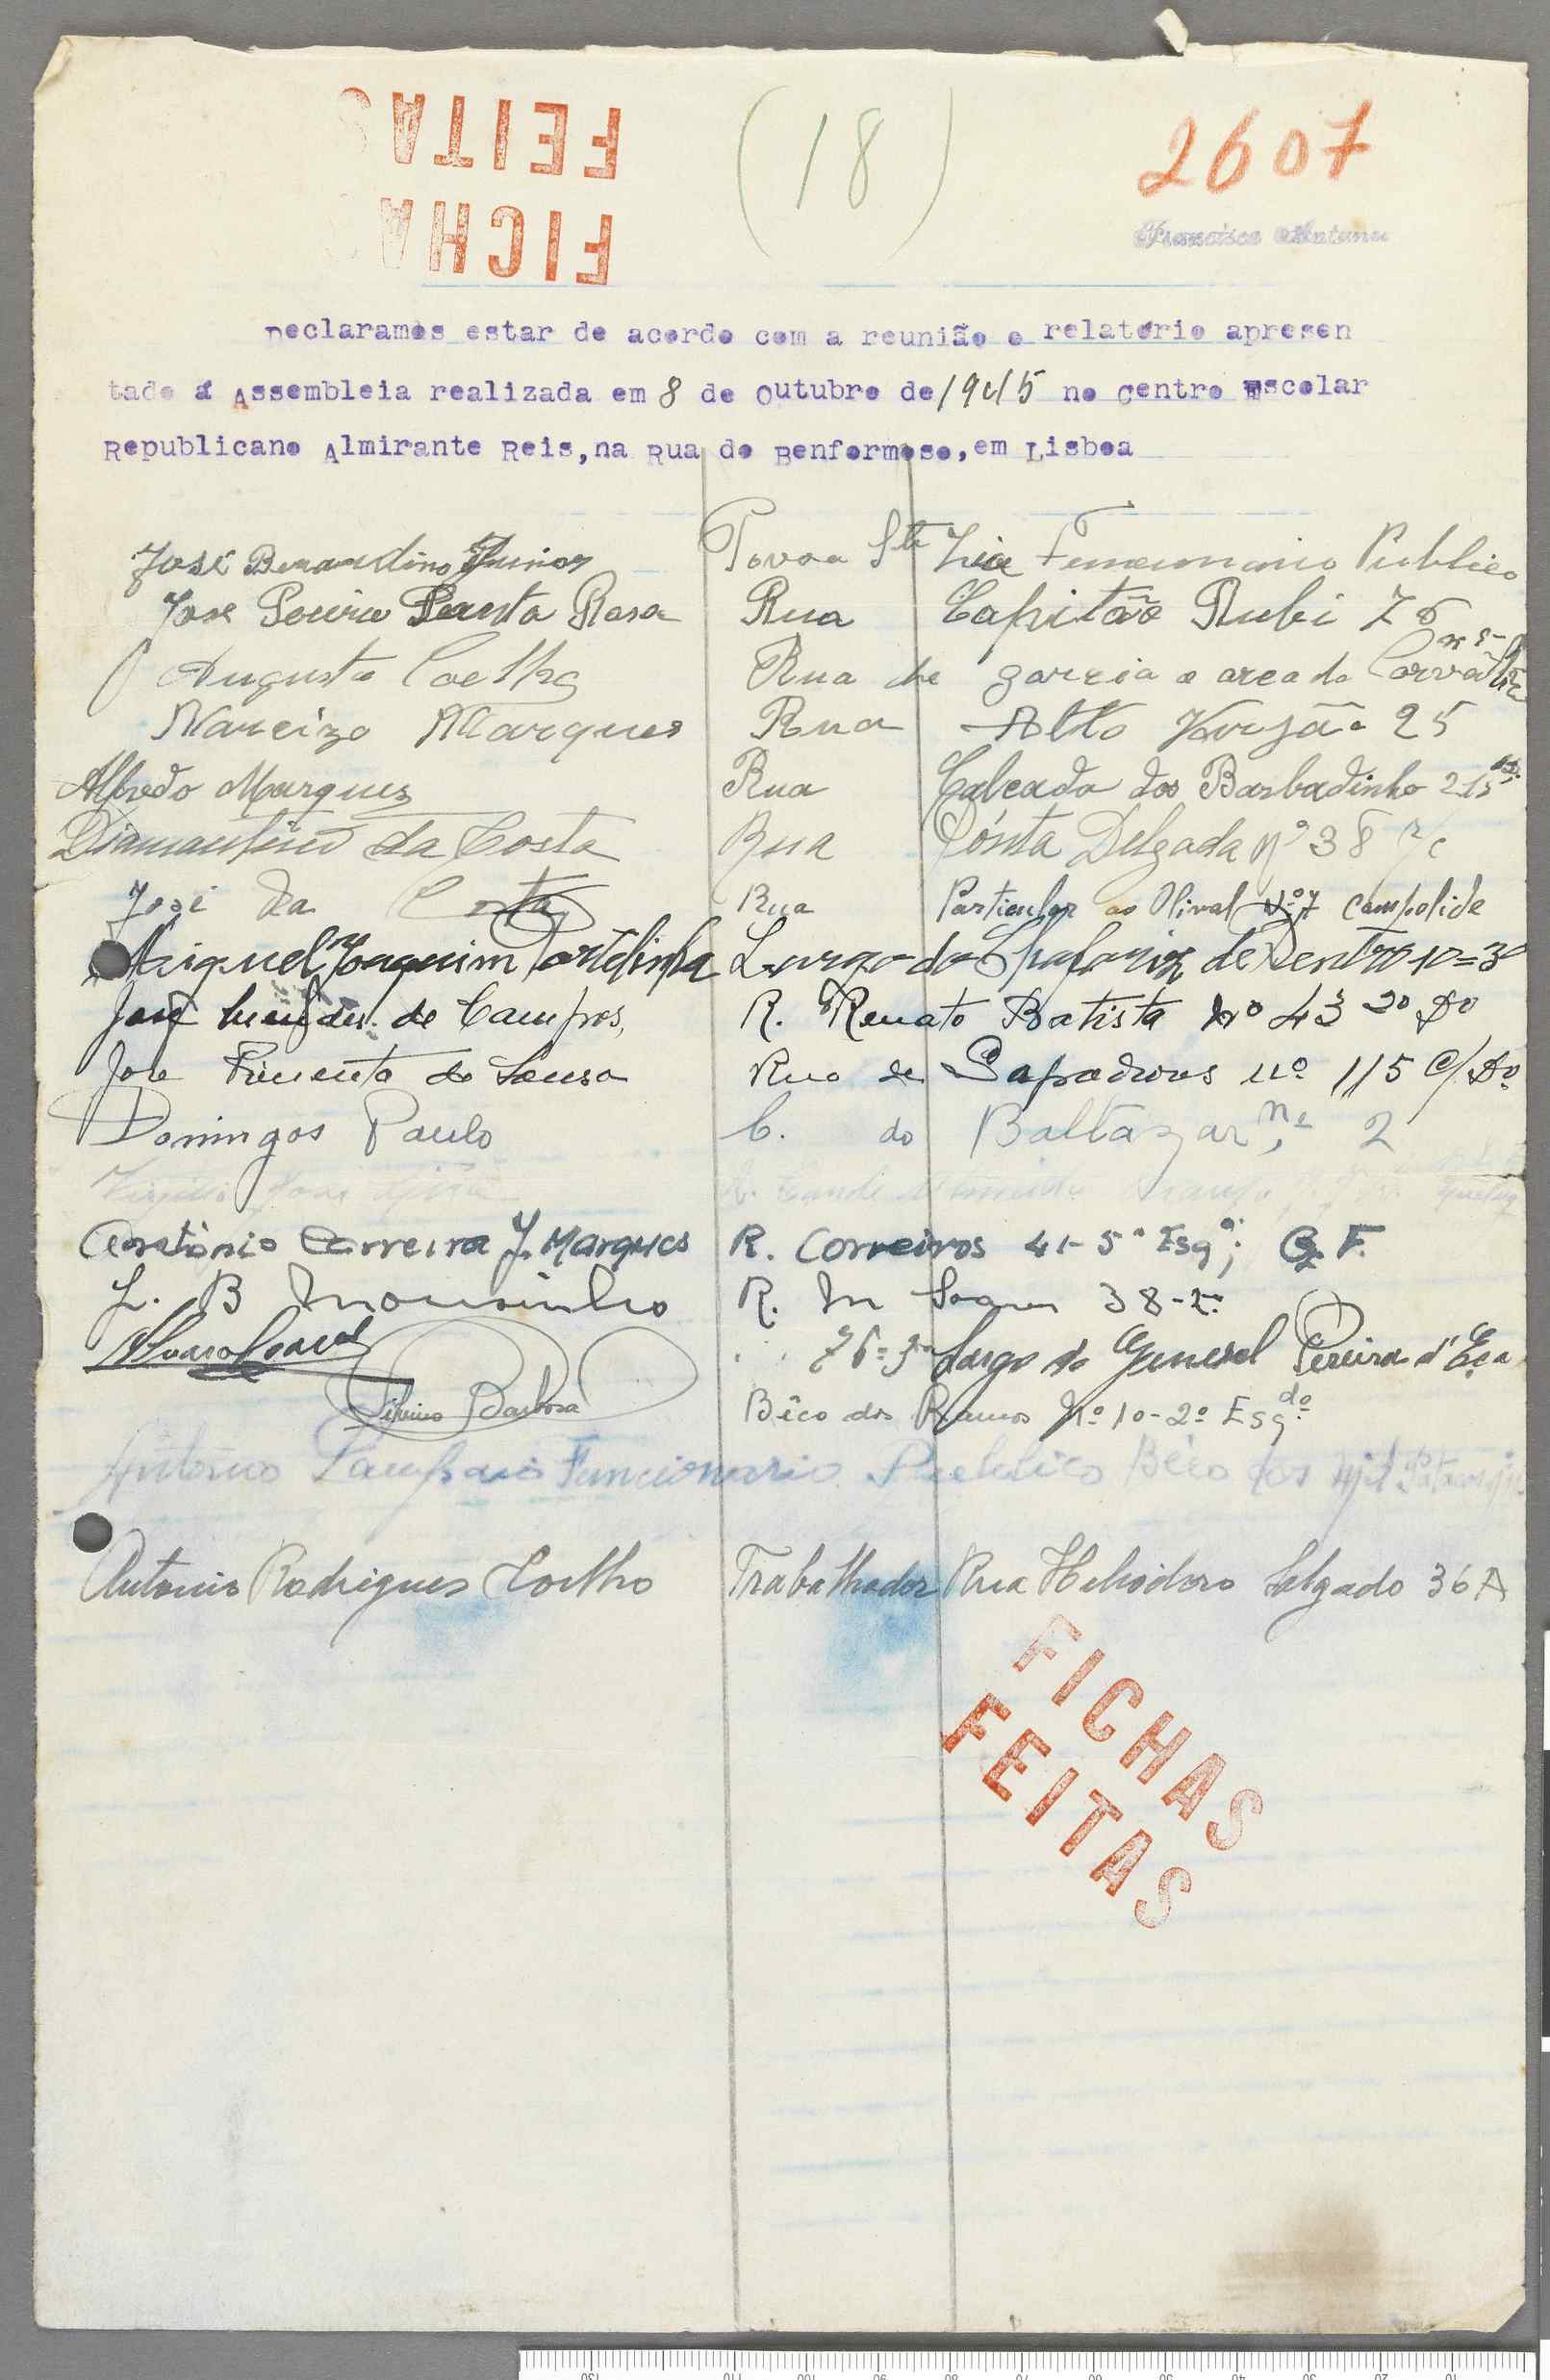 FICHAS
FEITAS
(18)
2607
Declaramos estar de acordo com a reunião e relatório apresen
tado á Assembleia realizada em 8 de Outubro de 1945 no Centro Escolar
Republicano Almirante Reis, na Rua do Benformoso, em Lisboa
José Bernardino Junior Povoa Sta Funcionario Publico
José Santa Rosa Rua Capitão Rubi 76
Augusto Coelho Rua de
Narcizo Marques Rua Alto Varejão 25
Alfredo Marques Rua Calçada dos Barbadinho
Diamantino da Costa Rua Ponta Delgada Nº 38 r/c
José da Costa Rua Particular ao Olival Nº 7 Campolide
Miguel Joaquim Portelinha Largo do Chafariz de Dentro 10=3º
José Mendes de Campos, R. Renato Batista nº 43 3º Dº
José Pimenta de Sousa Rua de Sapadores nº 115 c/ Dº
Domingos Paulo C. do Baltazar, nº 2
António Correira J. Marques R. Correiros 41-5º Esqº; G. F.
J. B Mousinho R. M 38-
Largo do General Pereira d'Eça
Barbosa Bêco dos Ramos Nº 10-2º Esqdo
Antonio Sampaio Funcionario Publico Béco dos
Antonio Rodrigues Coelho Trabalhador Rua Heliodoro Salgado 36 A
FICHAS
FEITAS